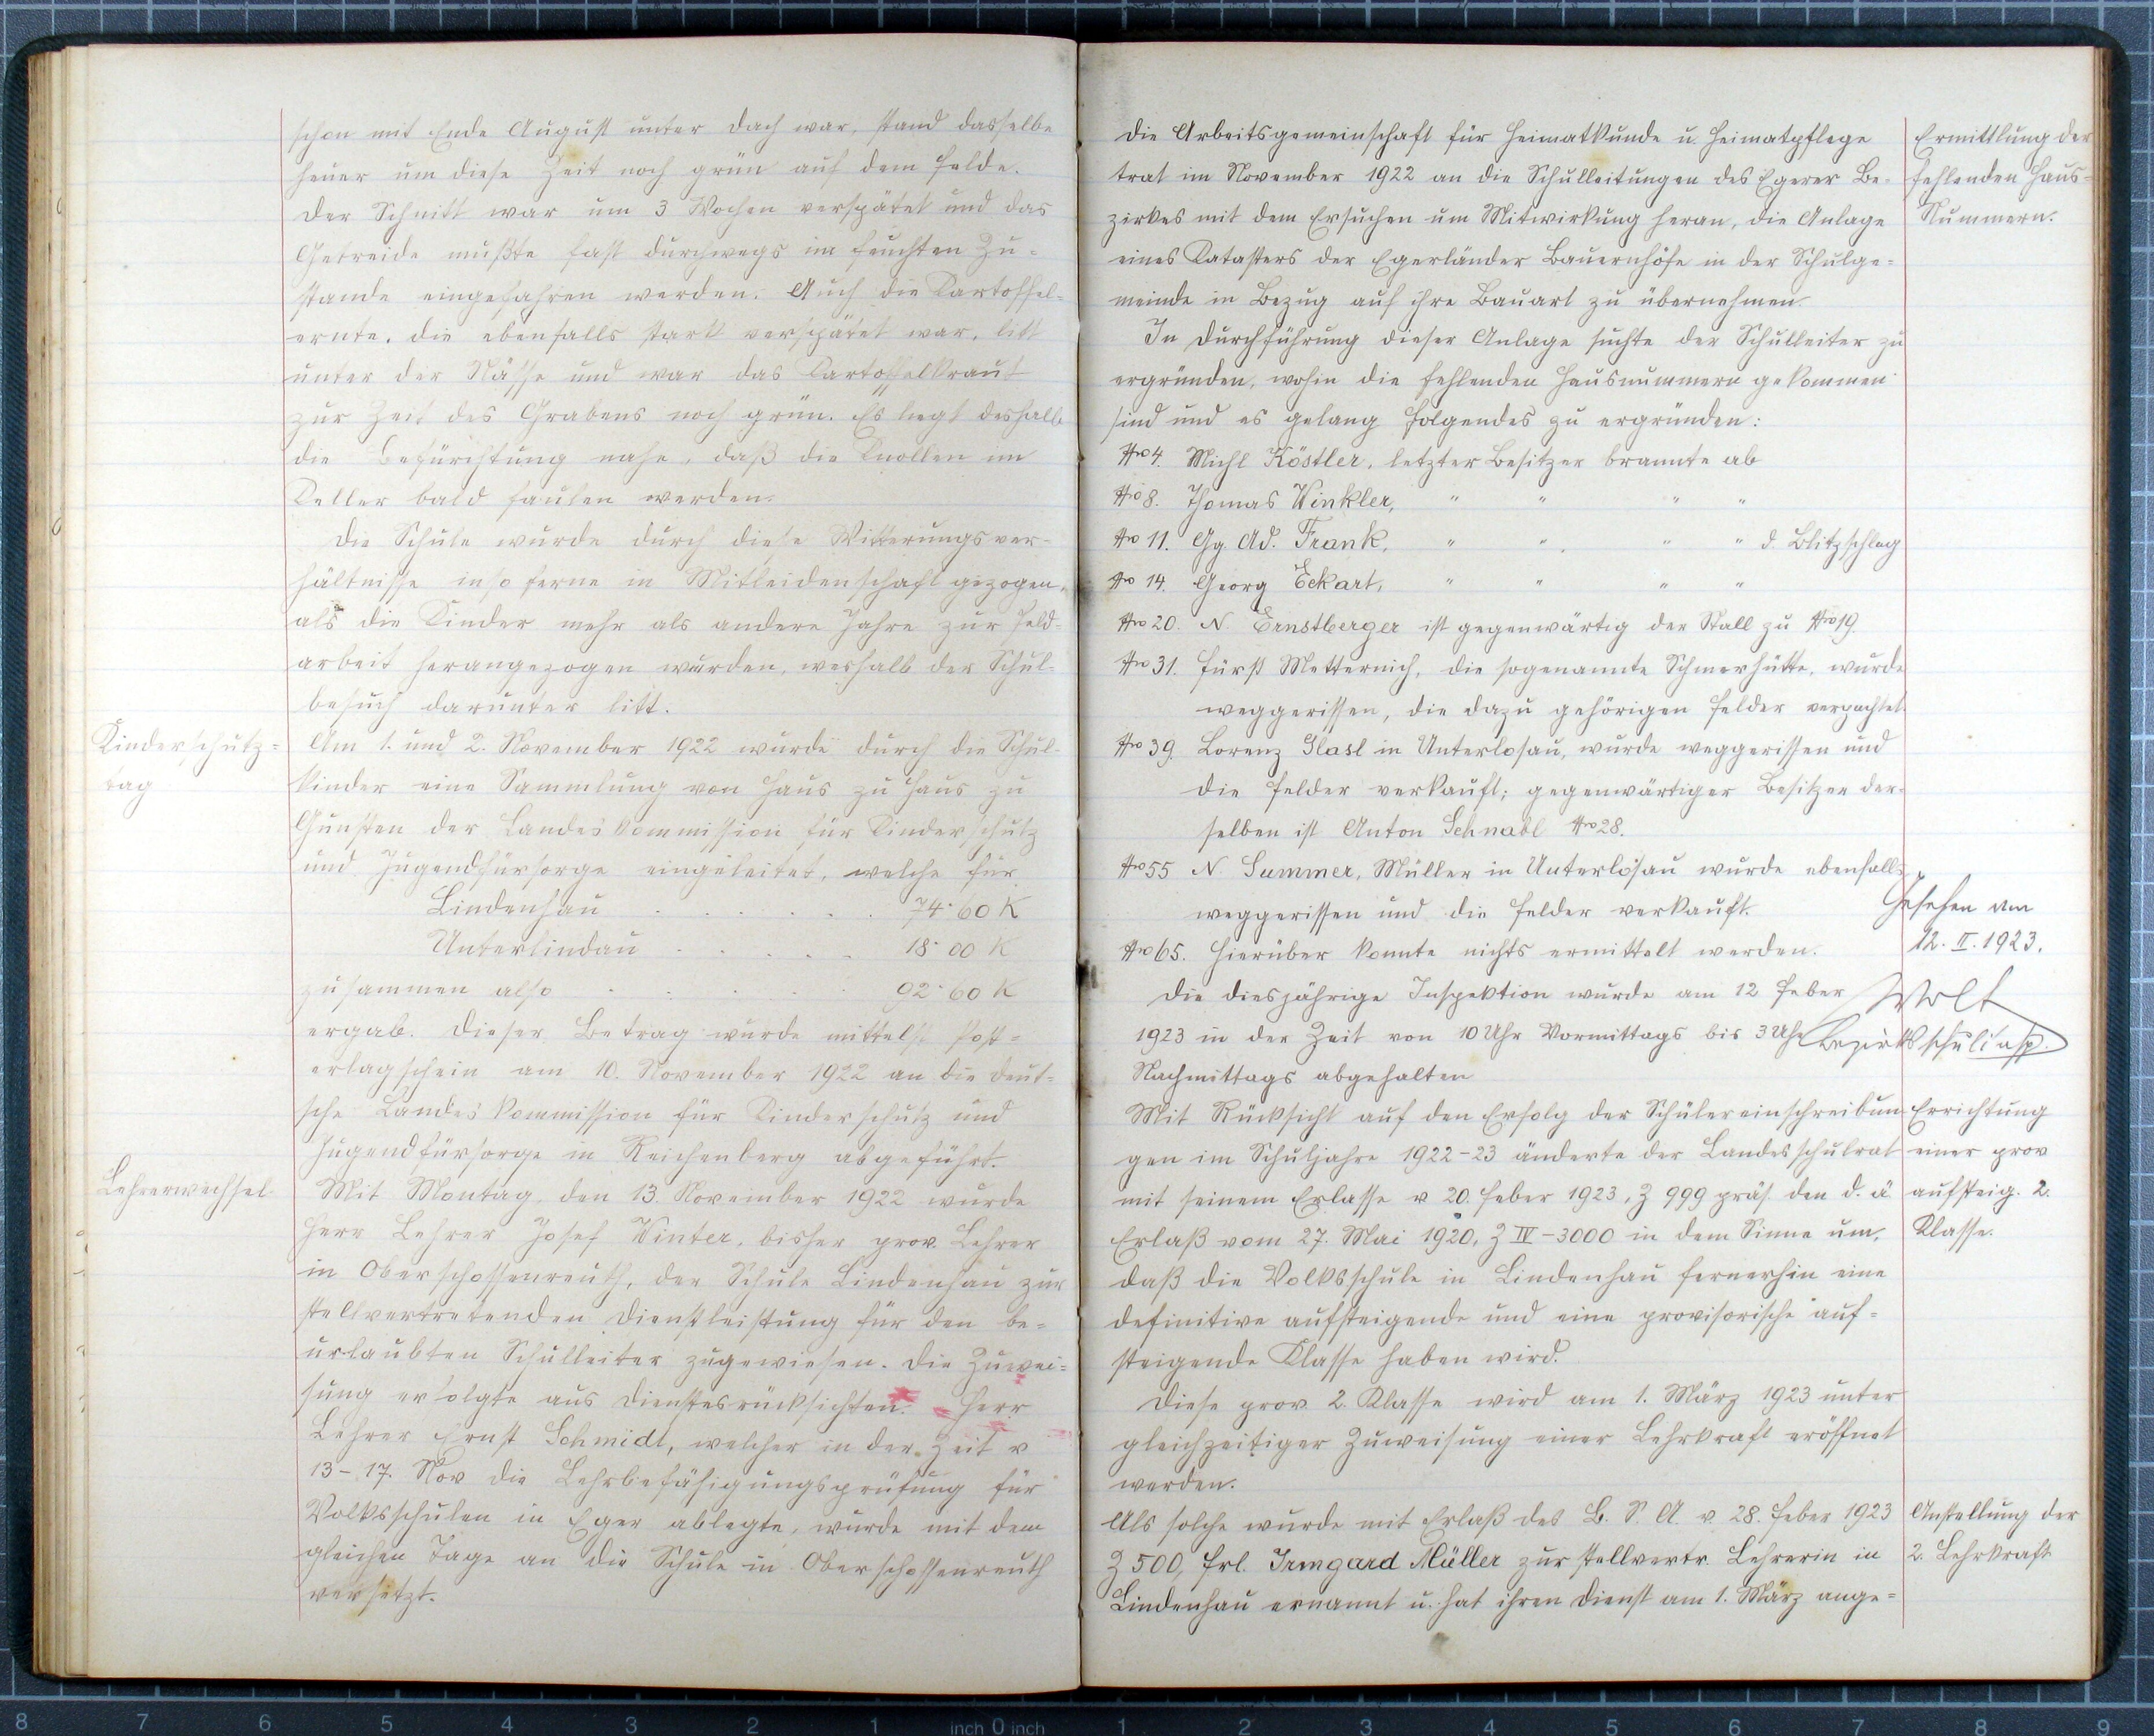 schon mit Ende August unter Dach war, stand dasselbe
heuer um diese Zeit noch grün auf dem Felde.
Der Schnitt war um 3 Wochen verspätet und das
Getreide mußte fast durchwegs im feuchten Zu-
stande eingefahren werden. Auch die Kartoffel-
ernte, die ebenfalls stark verspätet war, litt
unter der Nässe und war das Kartoffelkraut
zur Zeit des Grabens noch grün. Es liegt deshalb
die Befürchtung nahe, daß die Knollen im
Keller bald faulen werden.
Die Schule wurde durch diese Witterungsver-
hältnisse insoferne in Mitleidenschaft gezogen,
als die Kinder mehr als andere Jahre zur Feld-
arbeit herangezogen wurden, weshalb der Schul-
besuch darunter litt.
Kinderschutz-
tag
Am 1. und 2. November 1922 wurde durch die Schul-
kinder eine Sammlung von Haus zu Haus zu
Gunsten der Landeskommission für Kinderschutz
und Jugendfürsorge eingeleitet, welche für
Lindenhau . . . . . . 74·60 K
Unterlindau . . . . . 18·00 K
zusammen also . . . . . 92·60 K
ergab. Dieser Betrag wurde mittelst Post-
erlagschein am 10. November 1922 an die deut-
sche Landeskommission für Kinderschutz und
Jugendfürsorge in Reichenberg abgeführt.
Lehrerwechsel.
Mit Montag, den 13. November 1922 wurde
Herr Lehrer Josef Winter, bisher prov. Lehrer
in Oberschossenreuth, der Schule Lindenhau zur
stellvertretenden Dienstleistung für den be-
urlaubten Schulleiter zugewiesen. Die Zuwei-
sung erfolgte aus Dienstesrücksichten. Herr
Lehrer Ernst Schmidt, welcher in der Zeit v
13-17. Nov die Lehrbefähigungsprüfung für
Volksschulen in Eger ablegte, wurde mit dem
gleichen Tage an die Schule in Oberschossenreuth
versetzt.
Die Arbeitsgemeinschaft für Heimatkunde u. Heimatpflege
trat im November 1922 an die Schulleitungen des Egerer Be-
zirkes mit dem Ersuchen um Mitwirkung heran, die Anlage
eines Katasters der Egerländer Bauernhöfe in der Schulge-
meinde in Bezug auf ihre Bauart zu übernehmen.
Ermittlung der
fehlenden Haus-
Nummern.
In Durchführung dieser Anlage suchte der Schulleiter zu
ergründen, wohin die fehlenden Hausnummern gekommen
sind und es gelang folgendes zu ergründen:
Nro 4. Michl Köstler, letzter Besitzer brannte ab
Nro 8. Thomas Winkler, " " " "
Nro 11. Gg. Ad. Frank, " " " " d. Blitzschlag
Nro 14. Georg Eckart, " " " "
Nro 20. N. Ernstberger ist gegenwärtig der Stall zu Nro 19.
Nro 31. Fürst Metternich, die sogenannte Schmerhütte, wurde
weggerissen, die dazu gehörigen Felder verpachtet.
Nro 39. Lorenz Glasl in Unterlosau, wurde weggerissen und
die Felder verkauft; gegenwärtiger Besitzer der-
selben ist Anton Schnabl Nro 28.
Nro 55 N. Summer, Müller in Unterlosau wurde ebenfalls
weggerissen und die Felder verkauft.
Nro 65. Hierüber konnte nichts ermittelt werden.
Gesehen am
12. II. 1923.
Wolf
Bezirksschulinsp.
Die diesjährige Inspektion wurde am 12 Feber
1923 in der Zeit von 10 Uhr Vormittags bis 3 Uhr
Nachmittags abgehalten
Mit Rücksicht auf den Erfolg der Schülereinschreibun-
gen im Schuljahre 1922-23 änderte der Landesschulrat
mit seinem Erlasse v 20. Feber 1923, Z 999 präs. den d. ä
Erlaß vom 27. Mai 1920, Z IV-3000 in dem Sinne um,
daß die Volksschule in Lindenhau fernerhin eine
definitive aufsteigende und eine provisorische auf-
steigende Klasse haben wird.
Errichtung
einer prov
aufsteig. 2.
Klasse.
Diese prov. 2. Klasse wird am 1. März 1923 unter
gleichzeitiger Zuweisung einer Lehrkraft eröffnet
werden.
Als solche wurde mit Erlaß des B. S. A. v. 28. Feber 1923
Z 500, Frl. Irmgard Müller zur stellvertr. Lehrerin in
Lindenhau ernannt u. hat ihren Dienst am 1. März ange-
Anstellung der
2. Lehrkraft
8 7 6 5 4 3 2 1 inch 0 inch 1 2 3 4 5 6 7 8 9